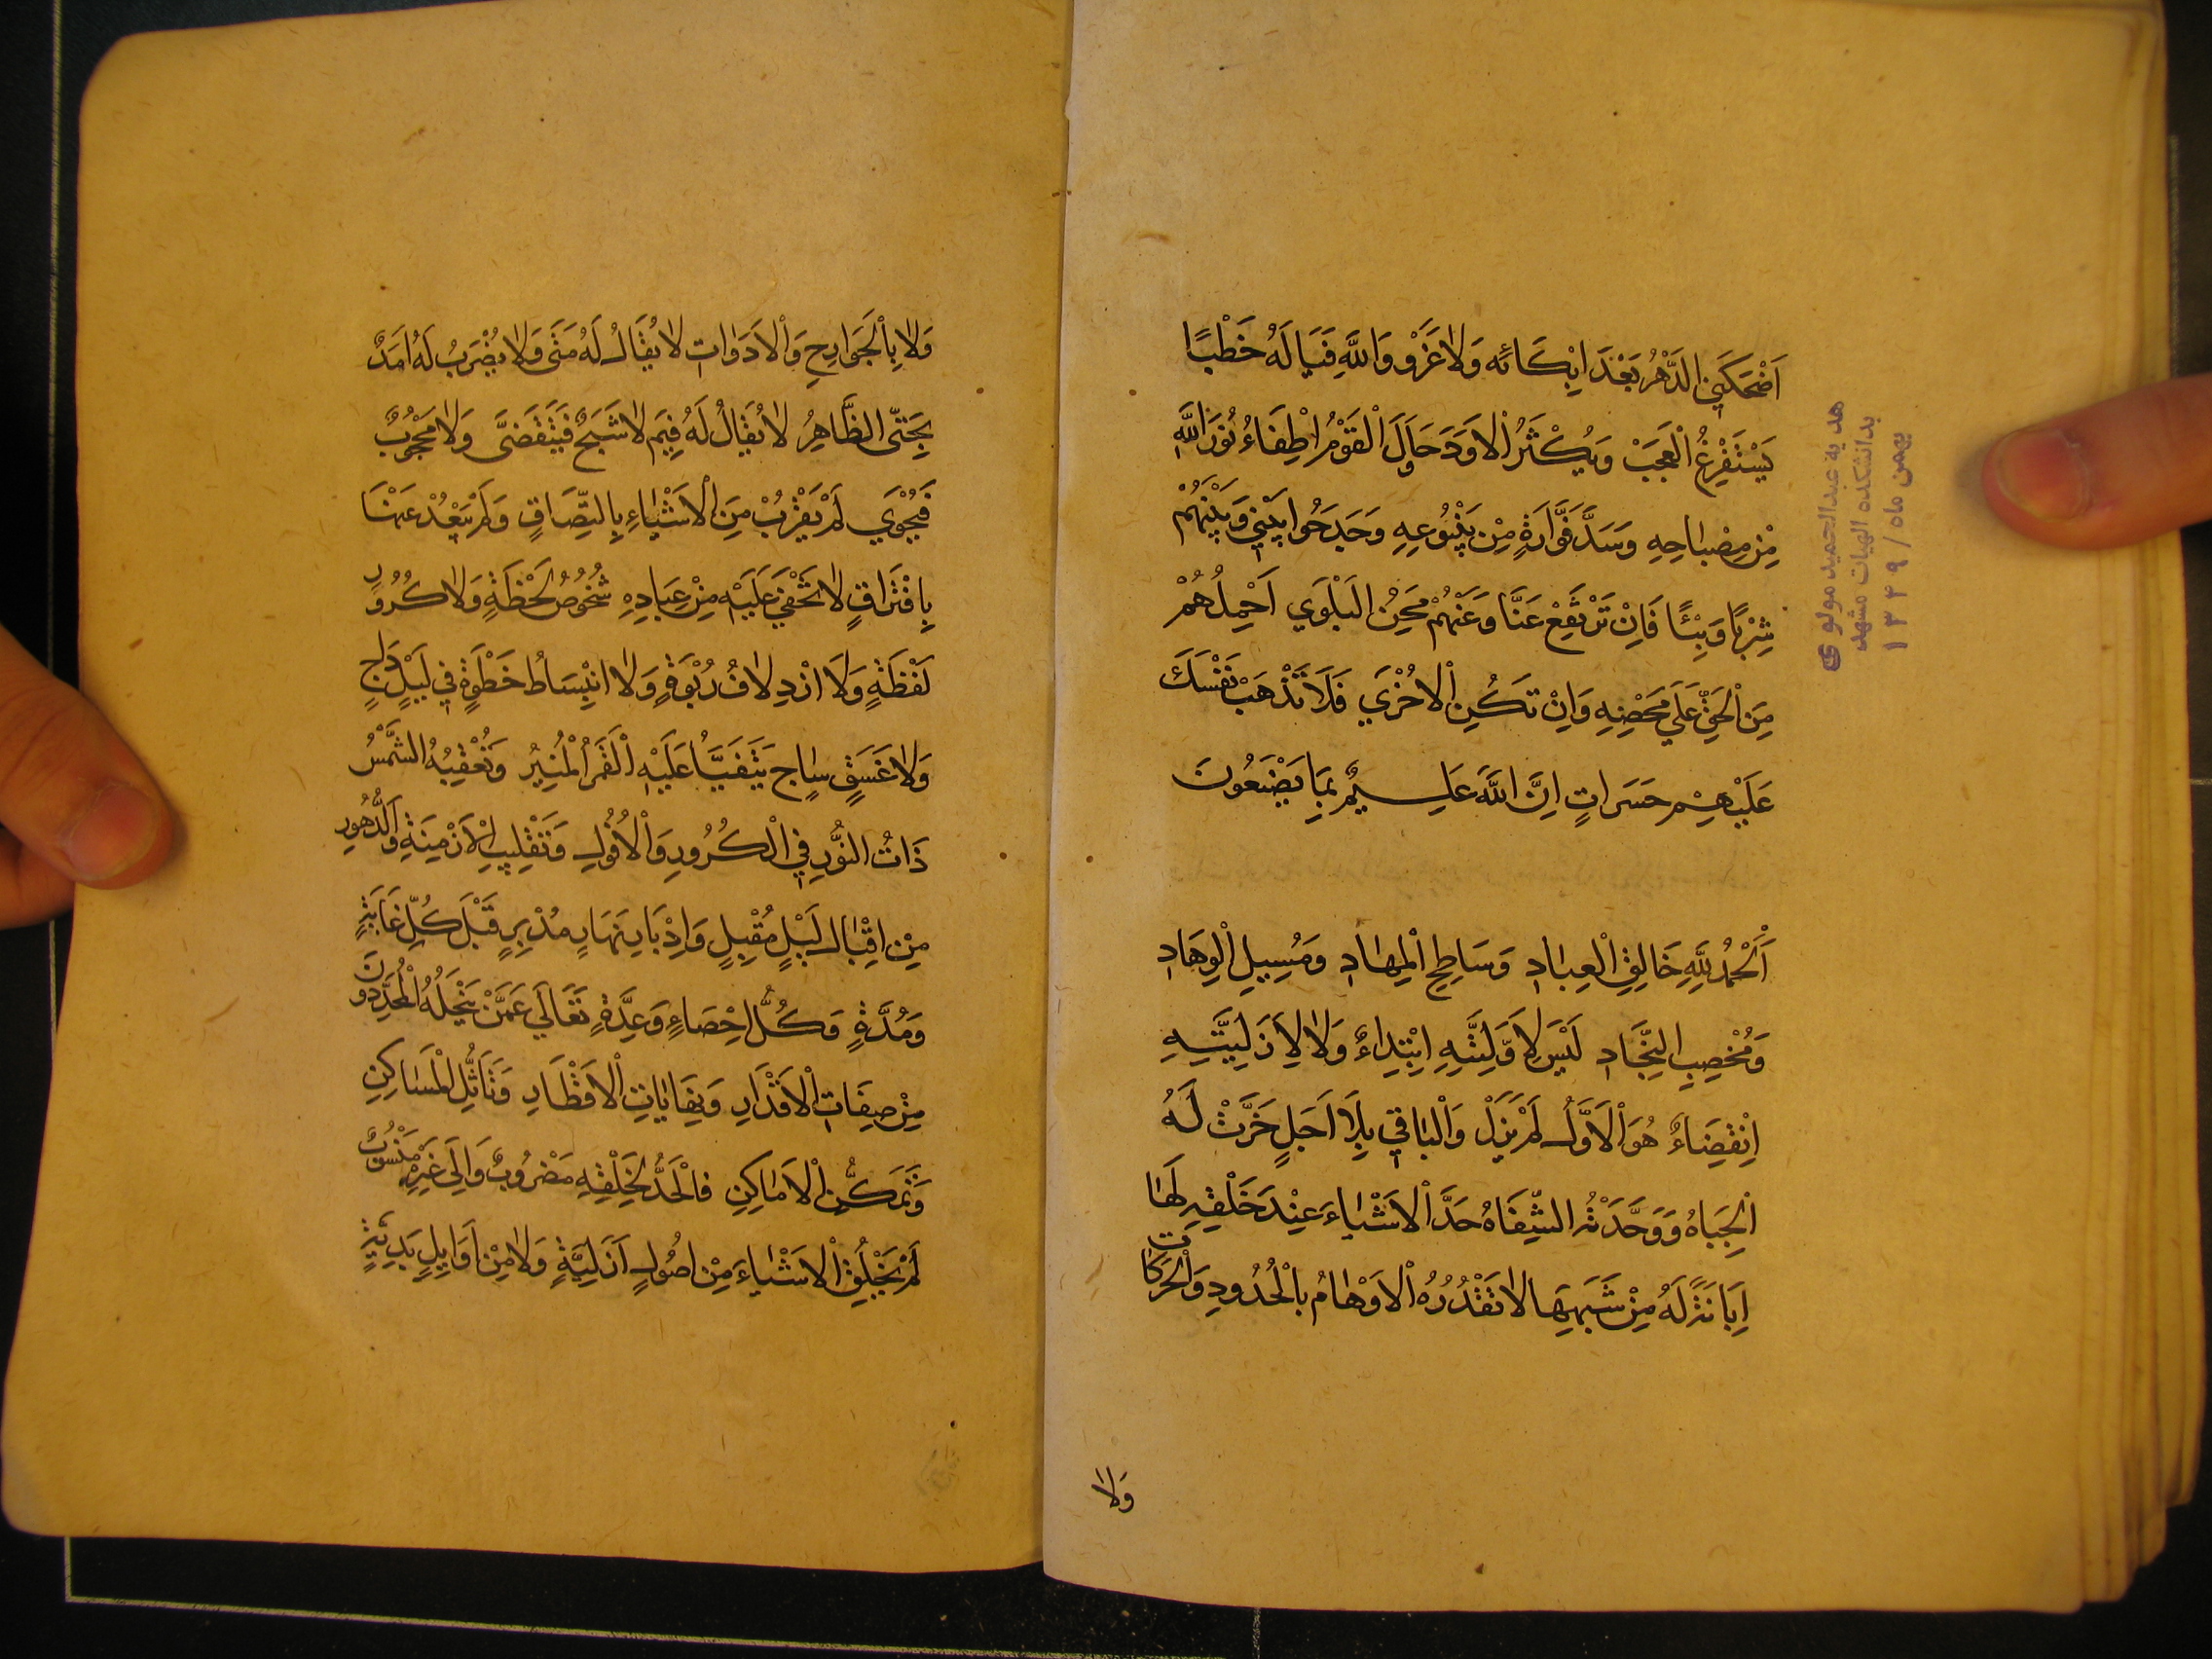 اَضْحَكَنِي الدَّهْرُ بَعْدَ اِبْكَائِه وَلاٰ غَرْوَ وَاللَّهِ فَيَا لَهُ خَطْبًا
يَسْتَفْرِغُ الْعَجَبَ وَيُكْثِرُ الْاَوَدَ حَاوَلَ الْقَوْمُ اِطْفَاءُ نُورَ اللّٰهِ
مِنْ مِصْبٰاحِهِ وَسَدَّ فَوَّارَةٍ مِنْ يَنْبُوعِهِ وَجَدَحُوا بَيْنِي وَبَيْنَهُمْ
شِرْبًا وَبِيْئًا فَاِنْ تَرْتَفِعْ عَنَّا وَعَنْهُمْ مِحَنُ الْبَلْوَي اَحْمِلُهُمْ
مِنَ الْحَقِّ عَلَي مَحْضِهِ وَاِنْ تَكُنِ الْاُخْرَي فَلَا تَذْهَبْ نَفْسَكَ
عَلَيْهِمْ حَسَرَاتٍ اِنَّ اللّٰهَ عَلِيمٌ بِمَا يَصْنَعُونَ
اَلْحَمْدُ لِلَّهِ خَالِقِ الْعِبٰادِ وَسَاطِحِ الْمِهٰادِ وَمُسِيلِ الْوِهَادِ
وَمُخْصِبِ النِّجَادِ لَيْسَ لِاَوَّلِيَّتِهِ اِبْتِدَاءٌ وَلاٰ لِاَزَلِيَّتِهِ
اِنْقِضَاءٌ هُوَ الْاَوَّلُ لَمْ يَزَلْ وَالْبٰاقِي بِلَا اَجَلٍ خَرَّتْ لَهُ
الْجِبَاهُ وَوَحَّدَتْهُ الشِّفَاهُ حَدَّ الْاَشْيٰاءَ عِنْدَ خَلْقِهِ لَهَا
اِبَانَةً لَهُ مِنْ شَبَهِهَا لاٰ تَقْدُرُهُ الْاَوْهٰامُ بِالْحُدُودِ وَالْحَرَكَاتِ
وَلاٰ
هديه عبدالحميد مولوى
بدانشكده الهيات مشهد
بهمن ماه/ ١٣٤٩
وَلاٰ بِالْجَوَارِحِ وَالْاَدَوٰاتِ لاٰ يُقَالُ لَهُ مَتَى وَلاٰ يُضْرَبُ لَهُ اَمَدٌ
بِحَتّٰى الظَّاهِرُ لاٰ يُقٰالُ لَهُ فِيمَ لاٰ شَبَحٌ فَيَتَقَضَّى وَلاٰ مَحْجُوبٌ
فَيُحْوَي لَمْ يَقْرُبْ مِنَ الْاَشْيٰاءِ بِالْتِصَاقٍ وَلَمْ يَبْعُدْ عَنْهٰا
بِافْتِرَاقٍ لاٰ يَخْفَي عَلَيْهِ مِنْ عِبَادِهِ شُخُوصُ لَحْظَةٍ وَلاٰ كُرُورُ
لَفْظَةٍ وَلَا ازْدِلاٰفُ رُبْوَةٍ وَلاٰ انْبِسَاطُ خَطْوَةٍ فِي لَيْلٍ دَاجٍ
وَلاٰ غَسَقٍ سٰاجٍ يَتَفَيَّأُ عَلَيْهِ الْقَمَرُ الْمُنِيرُ وَتَعْقِبُهُ الشَّمْسُ
ذَاتُ النُّورِ فِي الْكُرُورِ وَالْاُفُولِ وَتَقْلِيبِ الْاَزْمِنَةِ وَالدُّهُورِ
مِنْ اِقْبٰالِ لَيْلٍ مُقْبِلٍ وَاِدْبَارِ نَهَارٍ مُدْبِرٍ قَبْلَ كُلِّ غَايَةٍ
وَمُدَّةٍ وَكُلِّ اِحْصَاءٍ وَعِدَّةٍ تَعَالَي عَمَّا يَنْحَلُهُ الْمُحَدِّدُونَ
مِنْ صِفَاتِ الْاَقْدَارِ وَنِهَايٰاتِ الْاَقْطَارِ وَتَاَثُّلِ الْمَسٰاكِنِ
وَتَمَكُّنِ الْاَمَاكِنِ فَالْحَدُّ لِخَلْقِهِ مَضْرُوبٌ وَاِلَى غَيْرِهِ مَنْسُوبٌ
لَمْ يَخْلُقِ الْاَشْيٰاءَ مِنْ اُصُولٍ اَزَلِيَّةٍ وَلاٰ مِنْ اَوَايِلَ بَدِيَّةٍ